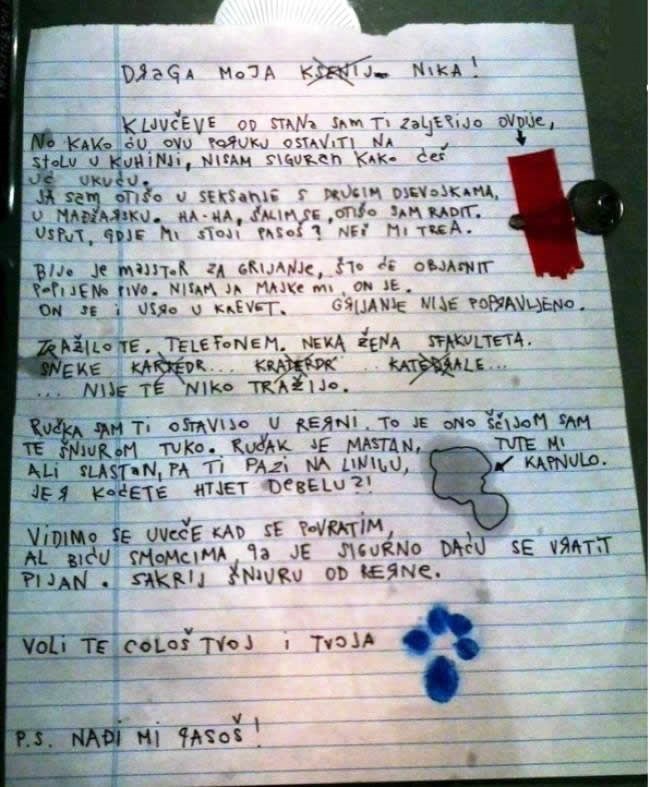 DRAGA MOJA KSENIJ NIKA!
KLJUČEVE OD STANA SAM TI ZALJEPIJO OVDIJE,
NO KAKO ĆU OVU PORUKU OSTAVITI NA
STOLU U KUHINJI, NISAM SIGUREN KAKO ĆEŠ
UĆ UKUĆU.
JA SAM OTIŠO U SEKSANJE S DRUGIM DJEVOJKAMA,
U MAĐARSKU. HA-HA, ŠALIMSE, OTIŠO SAM RADIT.
USPUT, GDJE MI STOJI PASOŠ? NEĆ MI TREA.
BIJO JE MAJSTOR ZA GRIJANJE, ŠTO ĆE OBJASNIT
POPIJENO PIVO. NISAM JA MAJKE MI, ON JE.
ON SE I USRO U KREVET. GRIJANJE NIJE POPRAVLJENO.
TRAŽILO TE. TELEFONEM. NEKA ŽENA SFAKULTETA.
SNEKE KARTEDR... KRATERDR .. KATEDRALE...
... NIJE TE NIKO TRAŽIJO.
RUČKA SAM TI OSTAVIJO U RERNI. TO JE ONO ŠČIJOM SAM
TE ŠNJUROM TUKO. RUČAK JE MASTAN, TUTE MI
ALI SLASTAN, PA TI PAZI NA LINIJU, KAPNULO.
JER KOĆETE HTJET DEBELU?!
VIDIMO SE UVEČE KAD SE POVRATIM,
AL BIĆU SMOMCIMA, PA JE SIGURNO DAĆU SE VRATIT
PIJAN. SAKRIJ ŠNJURU OD RERNE.
VOLI TE COLOŠ TVOJ I TVOJA
P.S. NAĐI MI PASOŠ!